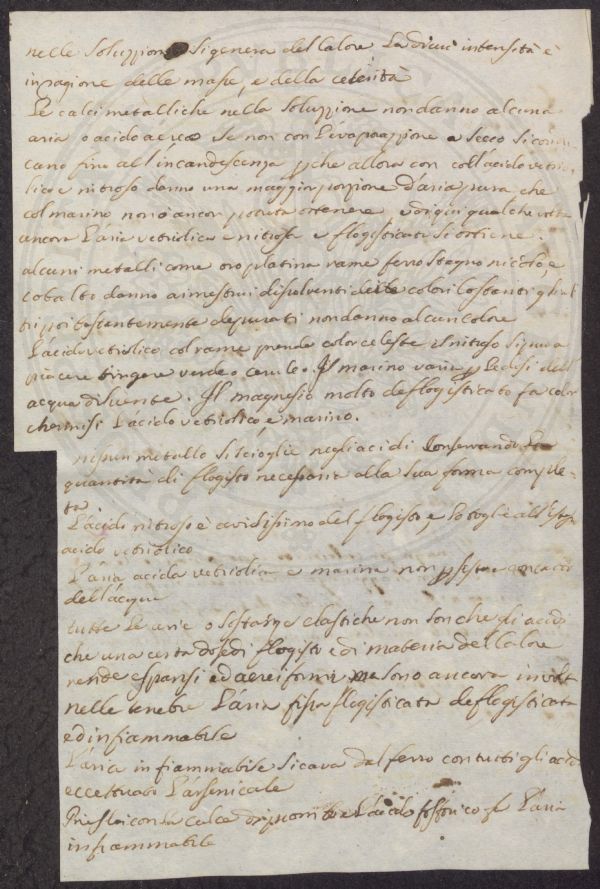 nelle soluzzione si genera del calore La di cui intensità è
in ragione delle masse, e della celerità
Le calci metalliche nella soluzzione non danno alcuna
aria o acido aereo se non con l'evaporazzione a secco si
cano fino all'incandescenza che allora con coll'acido
lico e nitroso danno una maggior porzione d'aria pura che
col marino non è ancor potuta ottenere e di qui qualche volta
ancora l'aria vetriolica e nitrosa e flogisticata si ottiene.
alcuni metalli come oro platina rame ferro stagno niccolo e
cobalto danno a i mestrui dissolventi delle colori costanti gl'
tri poi costantemente depurati non danno alcun colore
L'acido vetriolico col rame prende color celeste il nitroso si può a
piacere tingere verde o ceruleo. Il marino varia Le dosi dell'
acqua dissolvente. Il magnesio molto deflogisticato fa color
chermisi L'acido vetriolico, e marino.
nissun metallo si scioglie negli acidi conservando
quantità di flogisto necessaria alla sua forma comple-
ta.
L'acido nitroso è avidissimo del flogisto, e lo toglie all'istesso
acido vetriolico
L'aria acida vetriolica e marina non
dell'acque
tutte Le arie o sostanze elastiche non son che gli acidi
che una certa dose di flogisto e di materia del calore
rende espansi ed aereiformi ma sono ancora involt
nelle tenebre L'aria fissa flogisticata deflogisticata
ed infiammabile
L'aria infiammabile si cava dal ferro con tutti gli acidi
eccettuato L'arsenicale
con la calce di piombo e L'acido fosforico L'aria
infiammabile